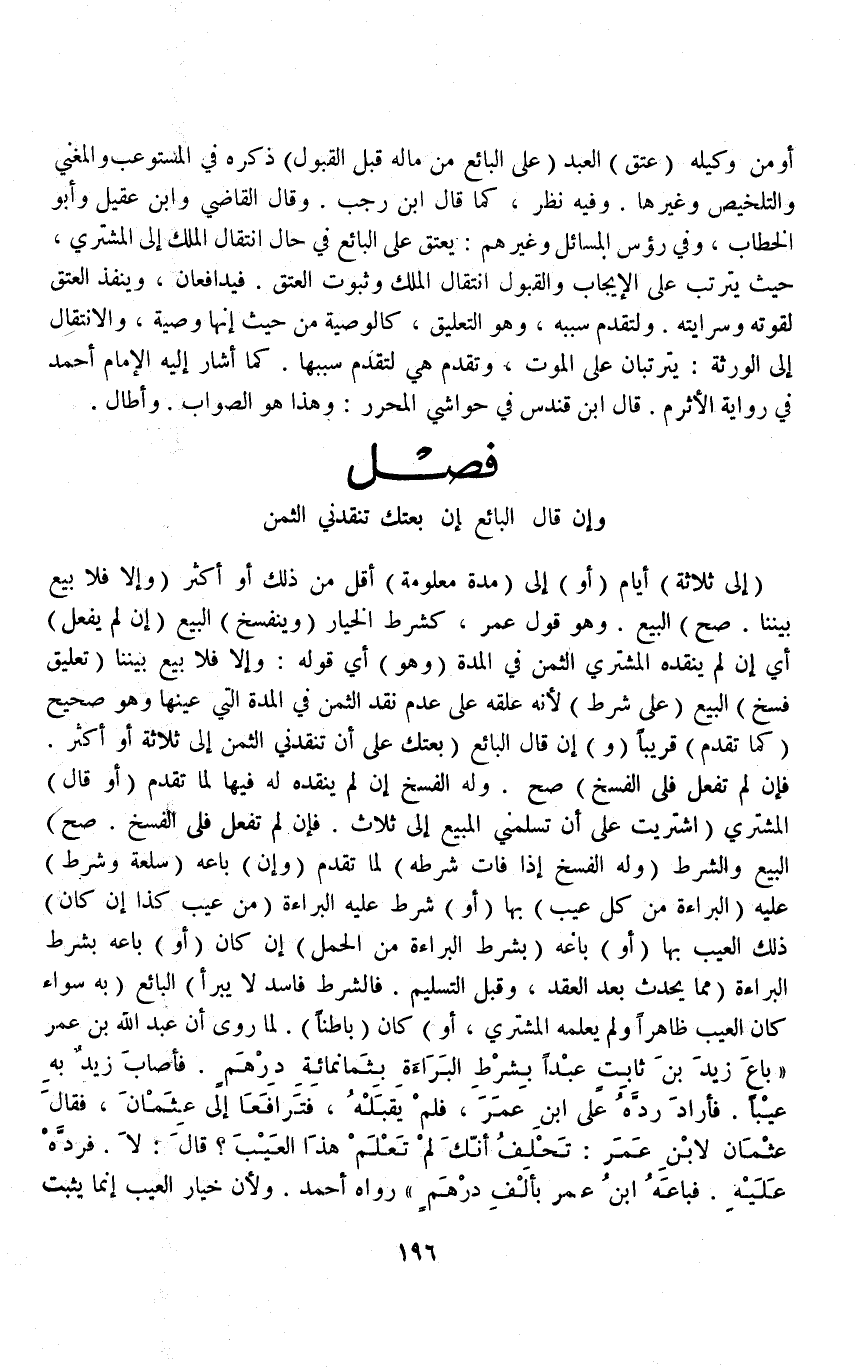 أو من وكيله ( عتق ) العبد ( على البائع من ماله قبل القبول) ذكره في المستوعب والمغني
والتلخيص وغيرها . وفيه نظر ، كما قال ابن رجب . وقال القاضي وابن عقيل وأبو
الخطاب ، وفي رؤس المسائل وغيرهم : يعتق على البائع في حال انتقال الملك إلى المشتري ،
حيث يترتب على الإيجاب والقبول انتقال الملك وثبوت العتق . فيدافعان ، وينفذ العتق
لقوته وسرايته . ولتقدم سببه ، وهو التعليق ، كالوصية من حيث إنها وصية ، والانتقال
إلى الورثة : يترتبان على الموت ، وتقدم هي لتقدم سببها . كما أشار إليه الإمام أحمد
في رواية الأثرم . قال ابن قندس في حواشي المحرر : وهذا هو الصواب . وأطال .
فصل
وإن قال البائع إن بعتك تنقدني الثمن
( إلى ثلاثة ) أيام ( أو ) إلى ( مدة معلومة ) أقل من ذلك أو أكثر ( وإلا فلا بيع
بيننا . صح ) البيع . وهو قول عمر ، كشرط الخيار ( وينفسخ ) البيع ( إن لم يفعل )
أي إن لم ينقده المشتري الثمن في المدة ( وهو ) أي قوله : وإلا فلا بيع بيننا ( تعليق
فسخ ) البيع ( على شرط ) لأنه علقه على عدم نقد الثمن في المدة التي عينها وهو صحيح
( كما تقدم ) قريباً ( و ) إن قال البائع ( بعتك على أن تنقدني الثمن إلى ثلاثة أو أكثر .
فإن لم تفعل فلى الفسخ ) صح . وله الفسخ إن لم ينقده له فيها لما تقدم ( أو قال )
المشتري ( اشتريت على أن تسلمني المبيع إلى ثلاث . فإن لم تفعل فلى الفسخ . صح )
البيع والشرط ( وله الفسخ إذا فات شرطه ) لما تقدم ( وإن ) باعه ( سلعة وشرط )
عليه ( البراءة من كل عيب ) بها ( أو ) شرط عليه البراءة ( من عيب كذا إن كان )
ذلك العيب بها ( أو ) باعه ( بشرط البراءة من الحمل ) إن كان ( أو ) باعه بشرط
البراءة ( مما يحدث بعد العقد ، وقبل التسليم . فالشرط فاسد لا يبرأ ) البائع ( به سواء
كان العيب ظاهراً ولم يعلمه المشتري ، أو ) كان ( باطناً ) . لما روى أن عبد الله بن عمر
« باعَ زيدَ بنَ ثابتٍ عبْداً بِشرْطِ البَرَاءَةِ بِثمانمائةِ دِرْهَمٍ . فأصابَ زيدٌ بهِ
عيْباً . فأرادَ ردَّهُ على ابنِ عمَرَ ، فلمْ يقبَلْهُ ، فتَرافَعَا إلَى عثمَانَ ، فقالَ
عثْمَان لابْنِ عمَرَ : تَحْلِفُ أنَّكَ لمْ تَعْلَمْ هذا العَيْبَ ؟ قالَ : لاَ . فردَّهُ
عَلَيْهِ . فباعَهُ ابنُ عمر بألْفِ درْهَمٍ » رواه أحمد . ولأن خيار العيب إنما يثبت
١٩٦